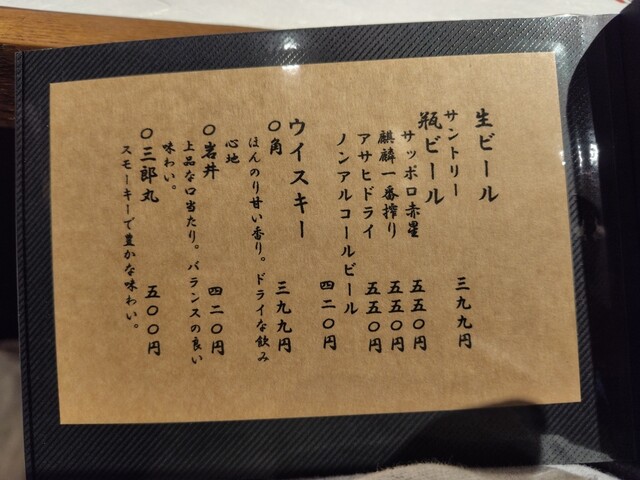 生ビール
サントリー 三九九円
瓶ビール
サッポロ赤星 五五〇円
麒麟一番搾り 五五〇円
アサヒドライ 五五〇円
ノンアルコールビール
四二〇円
ウイスキー
〇角 三九九円
ほんのり甘い香り。ドライな飲み
心地
〇岩井 四二〇円
上品な口当たり。バランスの良い
味わい。
〇三郎丸 五〇〇円
スモーキーで豊かな味わい。